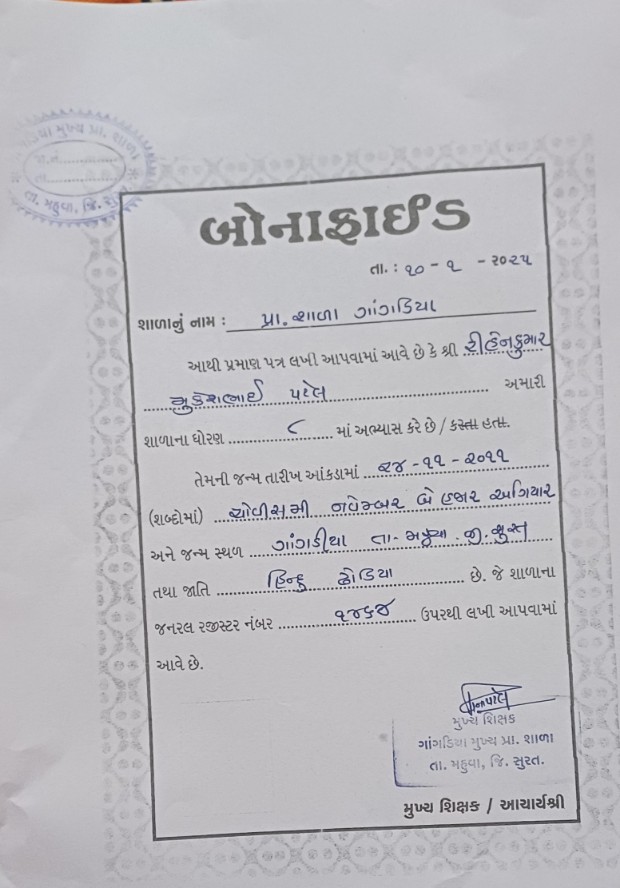 ગંગડિયા મુખ્ય પ્રા. શાળા
તા. મહુવા, જિ. સુરત
બોનાફાઈડ
તા. : ૧૦ - ૧ - ૨૦૨૫
શાળાનું નામ : પ્રા. શાળા ગાંગડિયા
આથી પ્રમાણ પત્ર લખી આપવામાં આવે છે કે શ્રી રીહેનકુમાર
મુકેશભાઈ પટેલ અમારી
શાળાના ધોરણ ૮ માં અભ્યાસ કરે છે / કરતા હતા.
તેમની જન્મ તારીખ આંકડામાં ૨૪ - ૧૧ - ૨૦૧૧
(શબ્દોમાં) ચોવીસમી નવેમ્બર બે હજાર અગિયાર
અને જન્મ સ્થળ ગાંગડીયા તા- મહુવા જી. સુરત
તથા જાતિ હિન્દુ ઢોડિયા છે. જે શાળાના
જનરલ રજીસ્ટર નંબર ૧૪૬૪ ઉપરથી લખી આપવામાં
આવે છે.
મુખ્ય શિક્ષક
ગાંગડિયા મુખ્ય પ્રા. શાળા
તા. મહુવા, જિ. સુરત.
મુખ્ય શિક્ષક / આચાર્યશ્રી